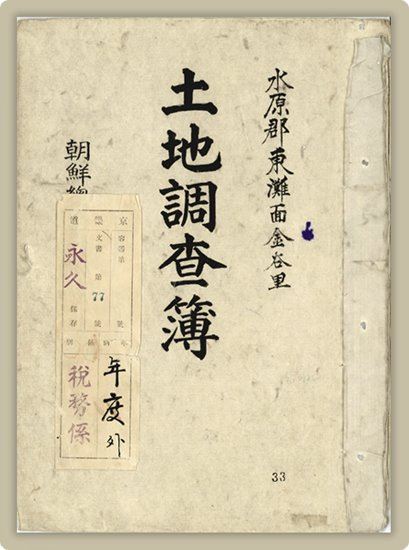 水原郡東灘面金谷里
土地調査簿
朝鮮總
京畿道
文書第77號
永久保存
年度外
税務係
33